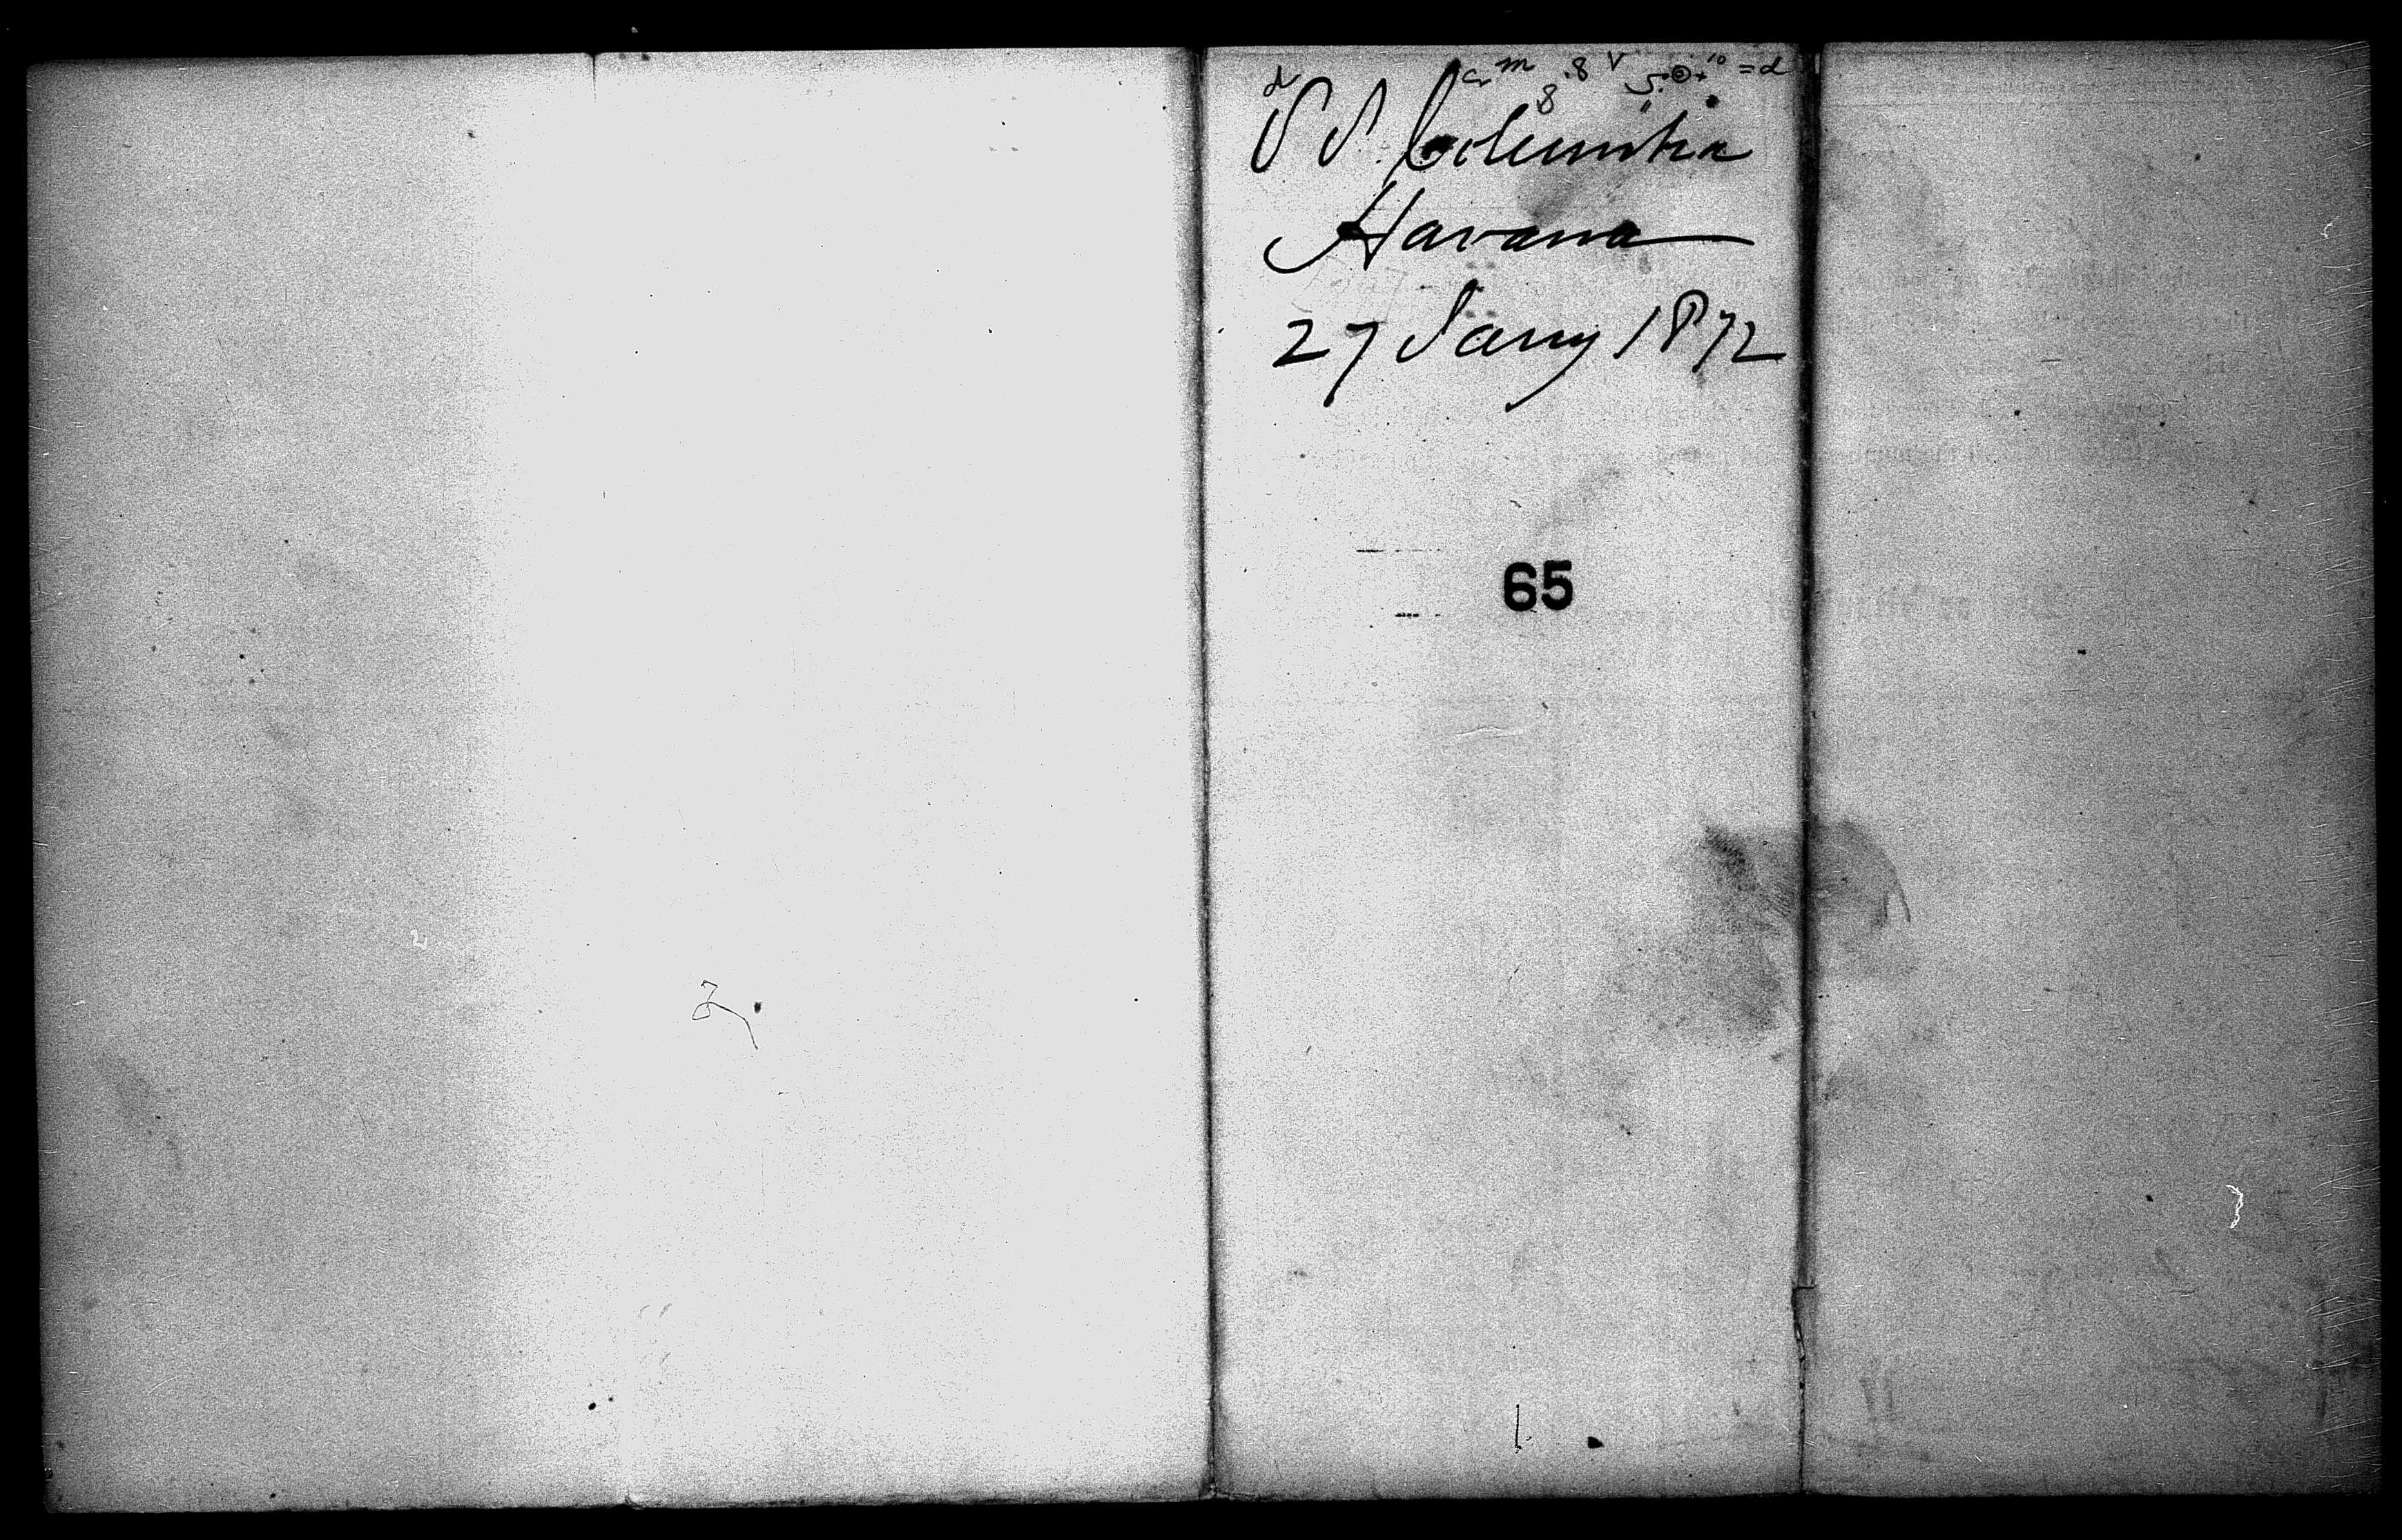 S S. Columbia
Havana
27 Jany 1872
65